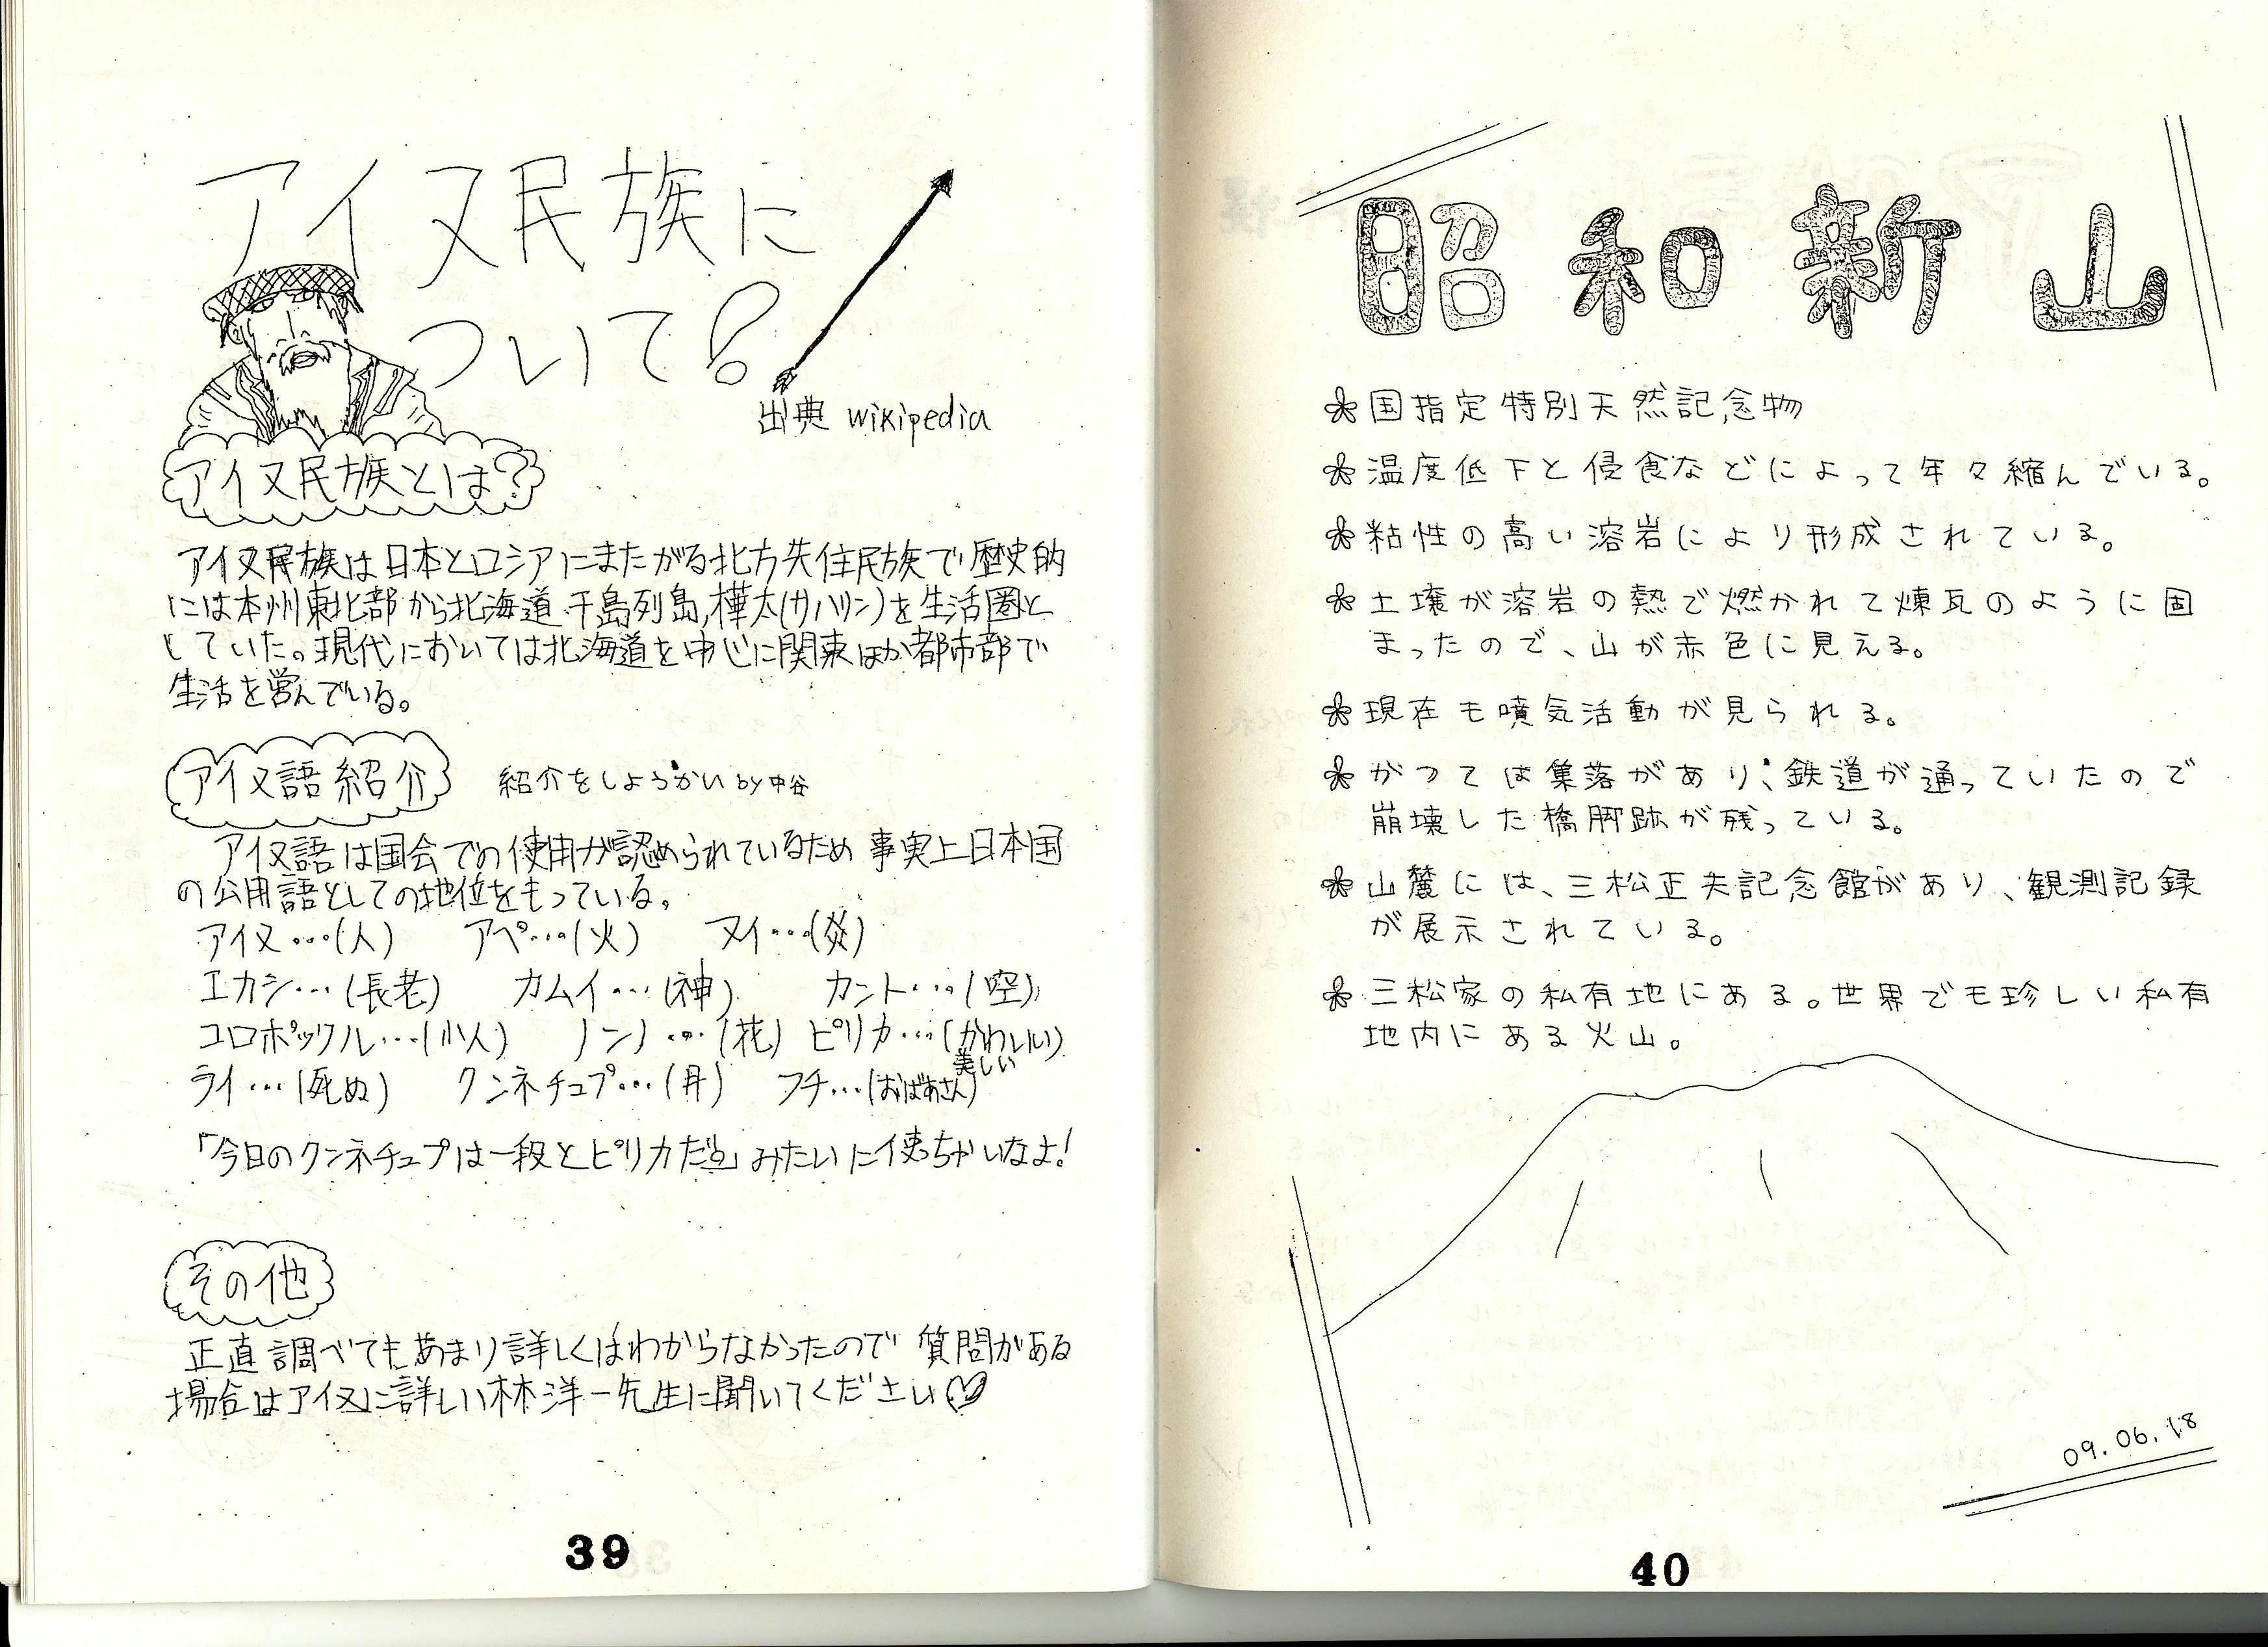 アイヌ民族に
ついて!
出典 wikipedia
アイヌ民族とは?
アイヌ民族は日本とロシアにまたがる北方先住民族で歴史的
には本州東北部から北海道、千島列島,樺太(サハリン)を生活圏と
していた。現代においては北海道を中心に関東ほか都市部で
生活を営んでいる。
アイヌ語紹介 紹介をしようかい by中谷
アイヌ語は国会での使用が認められているため事実上日本国
の公用語としての地位をもっている。
アイヌ…(人) アペ…(火) ヌイ…(炎)
エカシ…(長老) カムイ…(神) カント…(空)
コロポックル…(小人) ノンノ…(花) ピリカ…(かわいい)
美しい
ライ…(死ぬ) クンネチュプ…(月) フチ…(おばあさん)
「今日のクンネチュプは一段とピリカだ」みたいに使っちゃいなよ!
その他
正直調べてもあまり詳しくはわからなかったので質問がある
場合はアイヌに詳しい林洋一先生に聞いてください♡
39
昭和新山
国指定特別天然記念物
温度低下と侵食などによって年々縮んでいる。
粘性の高い溶岩により形成されている。
土壌が溶岩の熱で燃かれて煉瓦のように固
まったので、山が赤色に見える。
現在も噴気活動が見られる。
かつては集落があり、鉄道が通っていたので
崩壊した橋脚跡が残っている。
山麓には、三松正夫記念館があり、観測記録
が展示されている。
三松家の私有地にある。世界でも珍しい私有
地内にある火山。
09.06.18
40